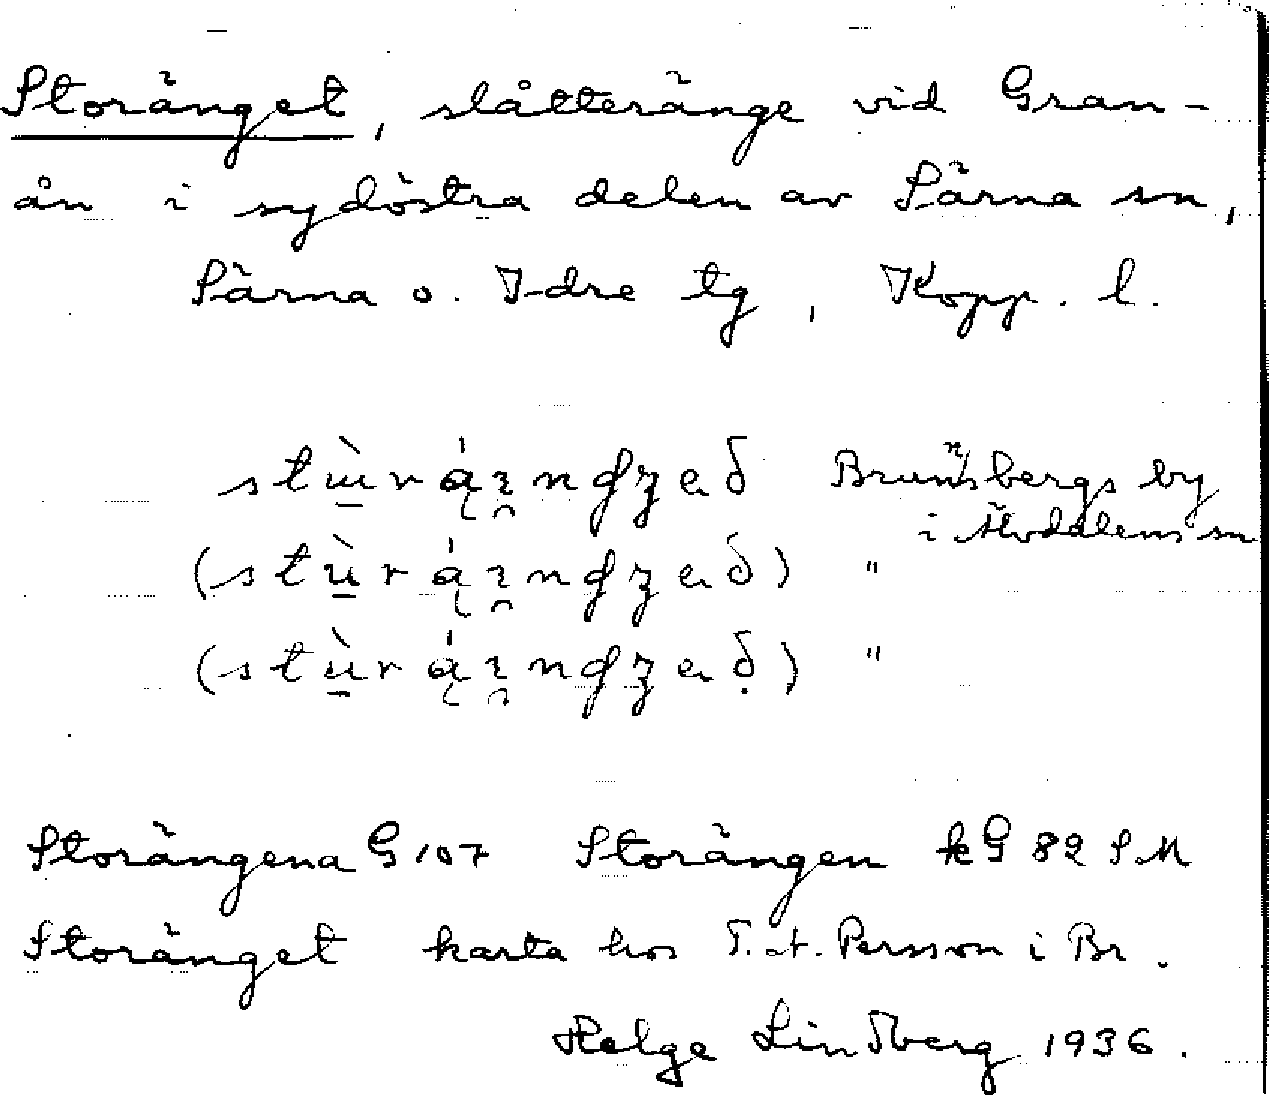 Storänget, slåtteränge vid Gran-
ån i sydöstra delen av Särna sn,
Särna o. Idre tg, Kopp. l.
Brunnsbergs by
i Älvdalens sn
"
"
Storängena G 107 Storängen kG 82 S.M
Storänget karta hos T. A. Persson i Br.
Helge Lindberg 1936.